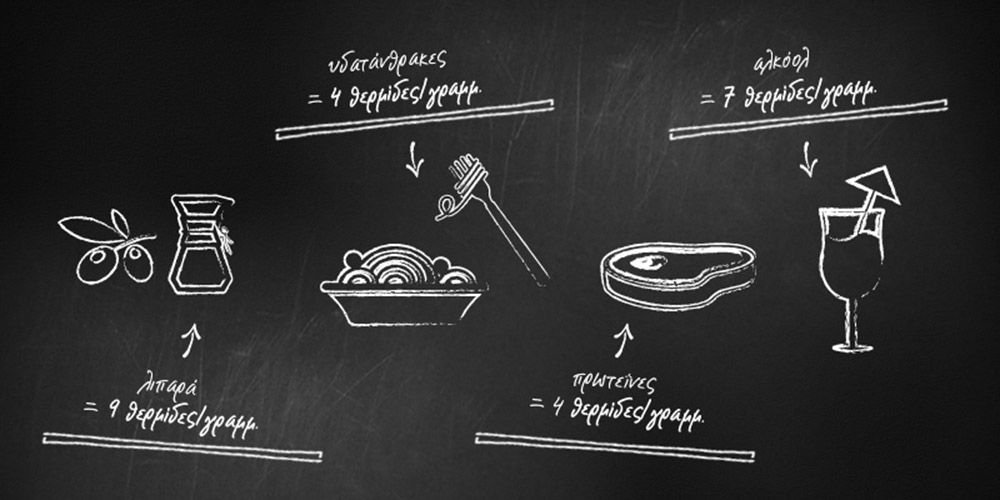 υδατάνθρακες
= 4 θερμίδες/γραμμ.
αλκόολ
= 7 θερμίδες/γραμμ.
λιπαρά
= 9 θερμίδες/γραμμ.
πρωτεΐνες
= 4 θερμίδες/γραμμ.